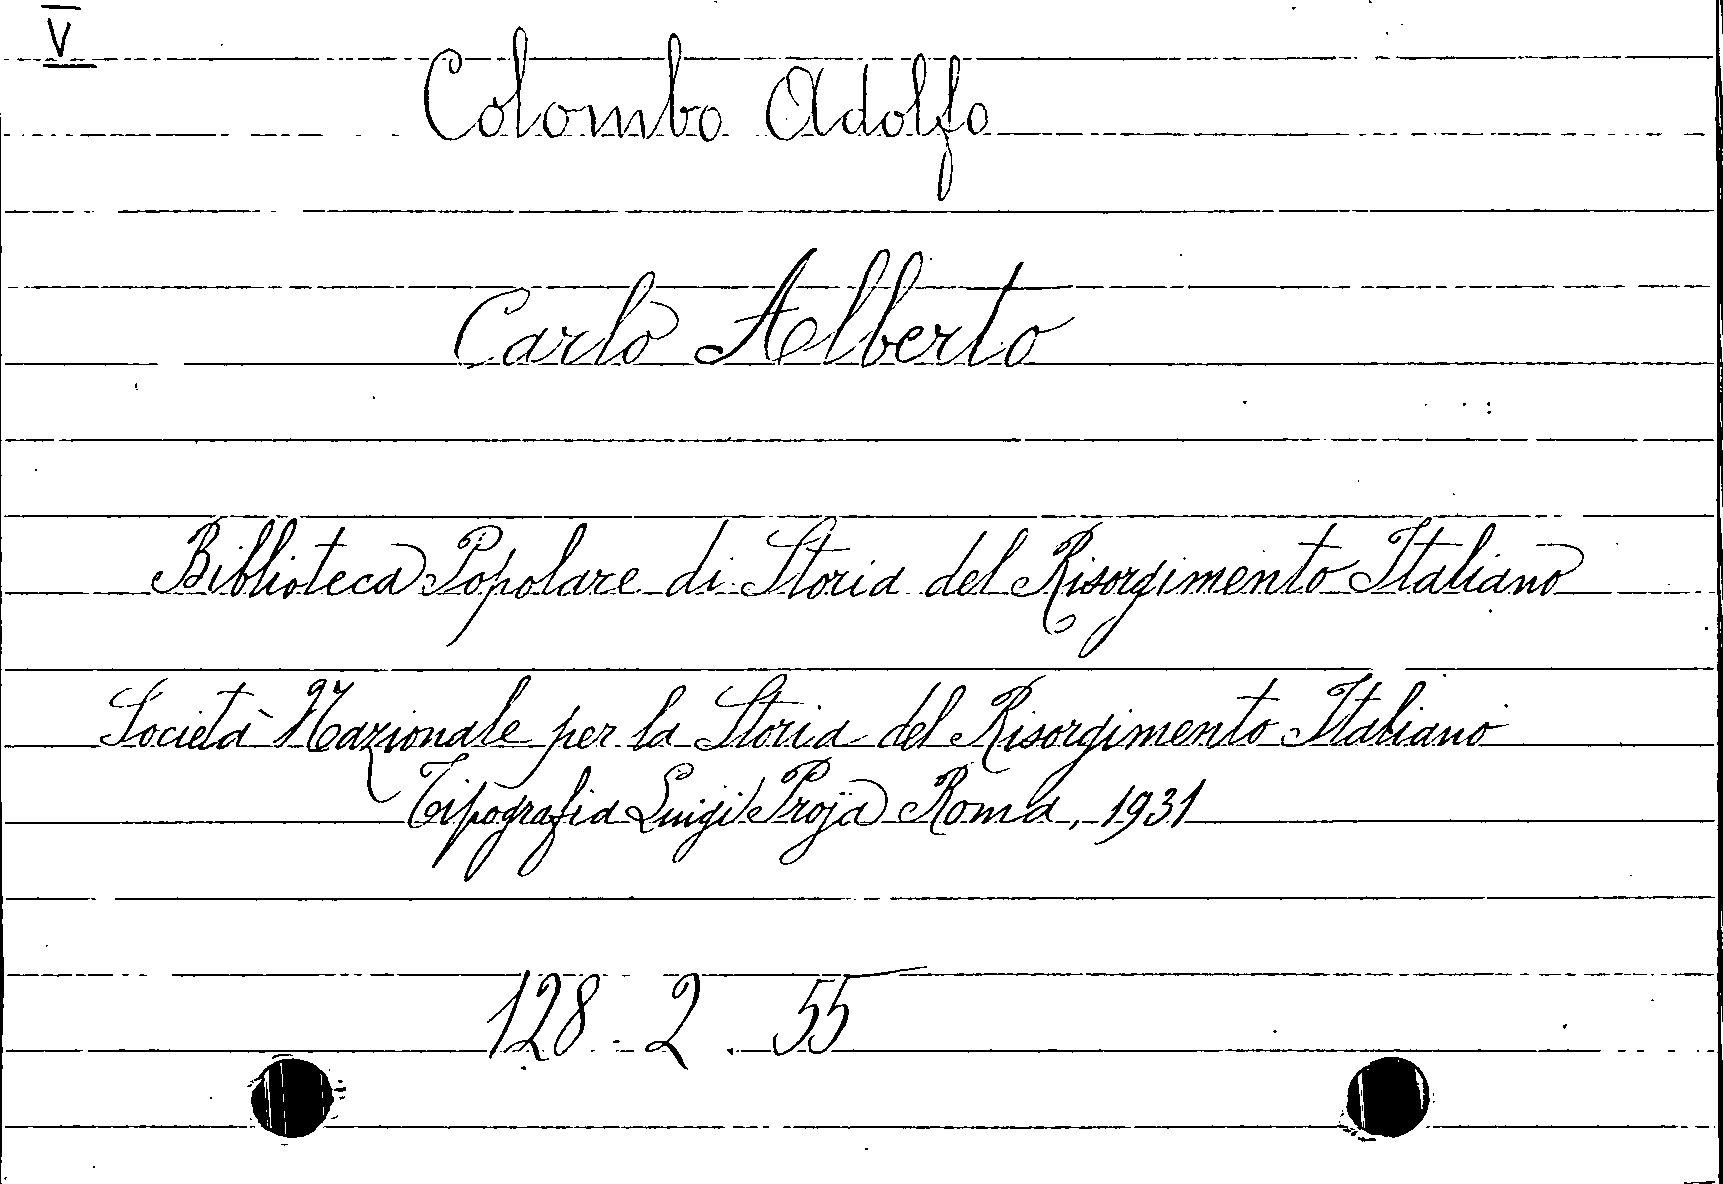 V
Colombo Adolfo
Carlo Alberto
Biblioteca Popolare di Storia del Risorgimento Italiano
Società Nazionale per la Storia del Risorgimento Italiano
Tipografia Luigi Proja Roma, 1931
128. 2. 55